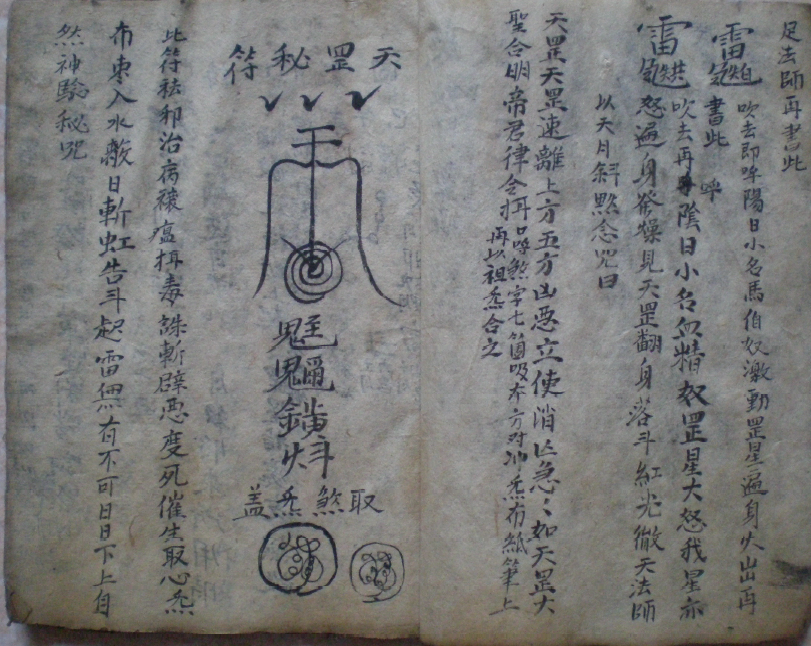 足法師再書此
雷
吹去即呼陽日小名馬伯奴激動罡星遍身火出再
書此
呼
吹去再 陰日小名血精奴罡星大怒我星亦
雷
怒遍身 燥見天罡翻身落斗紅光徹天法師
以天月斜點念咒曰
天罡天罡速離上方五方凶惡立使消亡急〻如天罡大
聖合明帝君律令 口呼煞字七箇吸本方对冲炁布紙筆上
再以祖炁合之
天罡秘符
取煞炁蓋
此符祛邪治病禳瘟 毒誅斬辟惡度死催生取心炁
布東入水 日斬虹告斗起雷無有不可日日下上自
然神驗秘咒